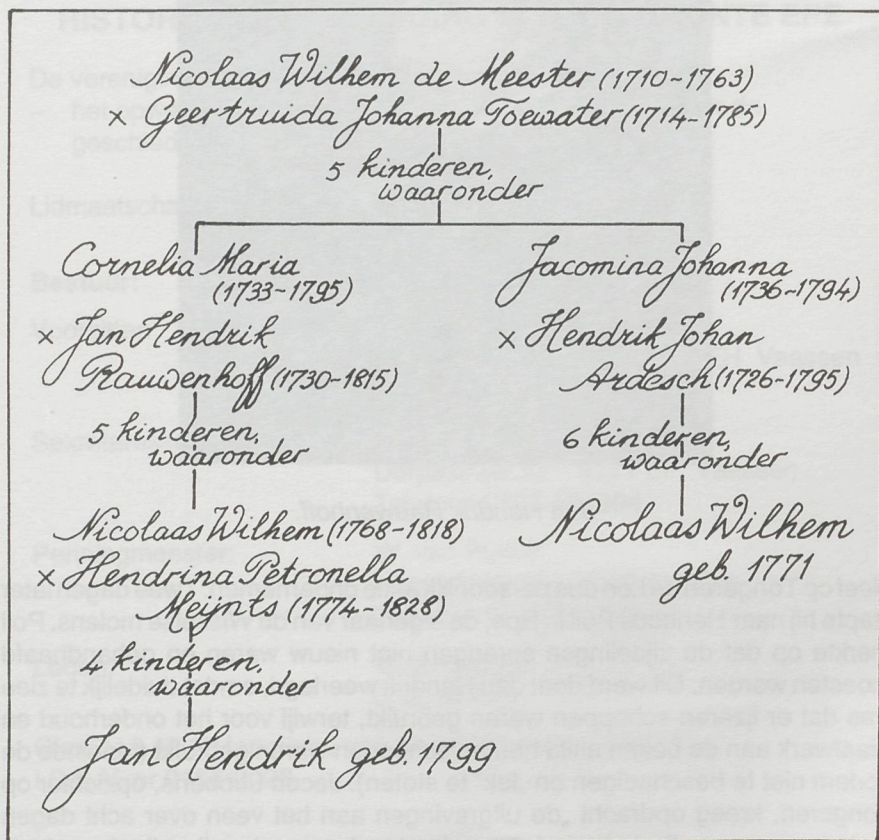 Nicolaas Wilhem de Meester (1710-1763)
× Geertruida Johanna Toewater (1714-1785)
5 kinderen,
waaronder
Cornelia Maria
(1733-1795)
× Jan Hendrik
Rauwenhoff (1730-1815)
5 kinderen,
waaronder
Nicolaas Wilhem (1768-1818)
× Hendrina Petronella
Meijnts (1774-1828)
4 kinderen,
waaronder
Jan Hendrik geb. 1799
Jacomina Johanna
(1736-1794)
× Hendrik Johan
Ardesch (1726-1795)
6 kinderen,
waaronder
Nicolaas Wilhem
geb. 1771